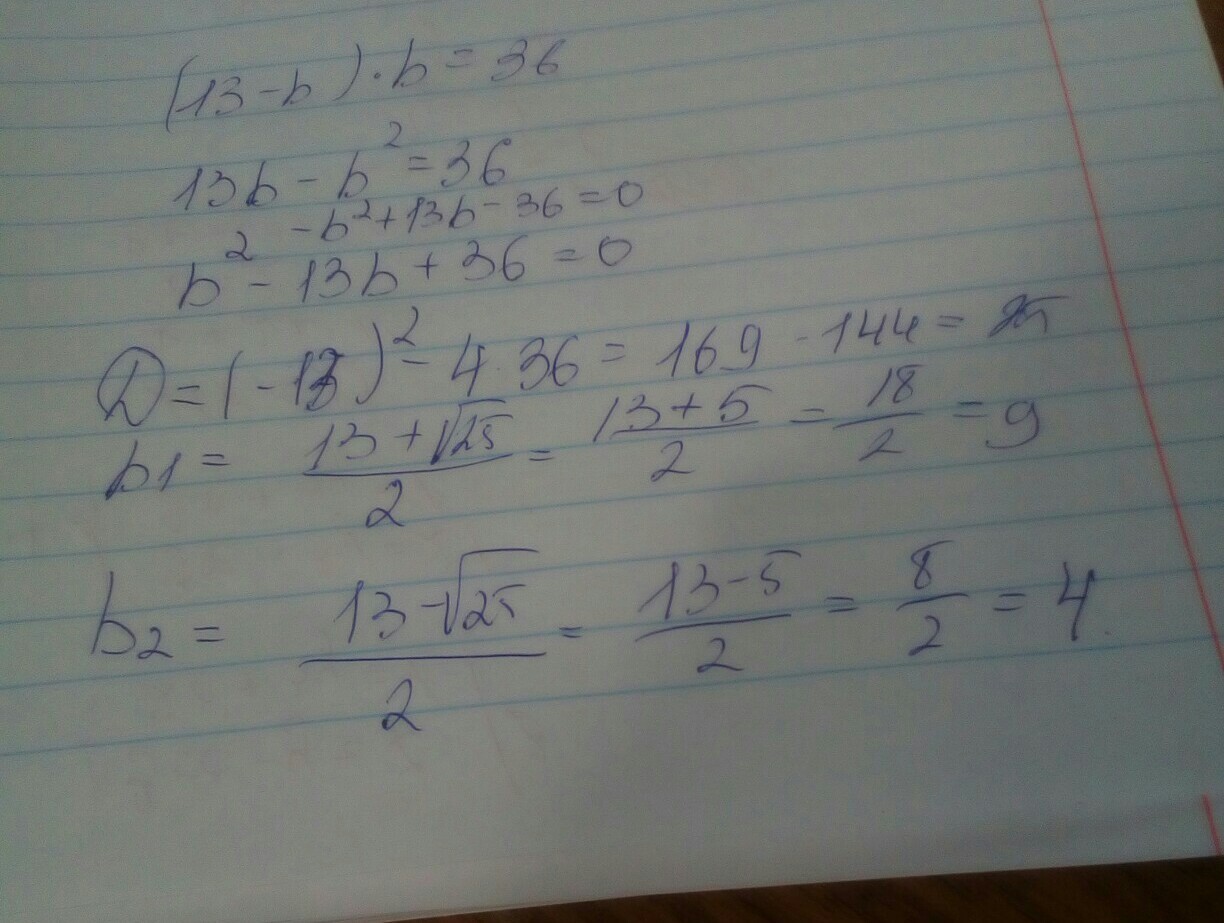 (13-b)·b=36
13b-b²=36
-b²+13b-36=0
b²-13b+36=0
D=(-13)²-4·36=169-144=25
b1=\frac{13+√25}{2}=\frac{13+5}{2}=\frac{18}{2}=9
b2=\frac{13-√25}{2}=\frac{13-5}{2}=\frac{8}{2}=4